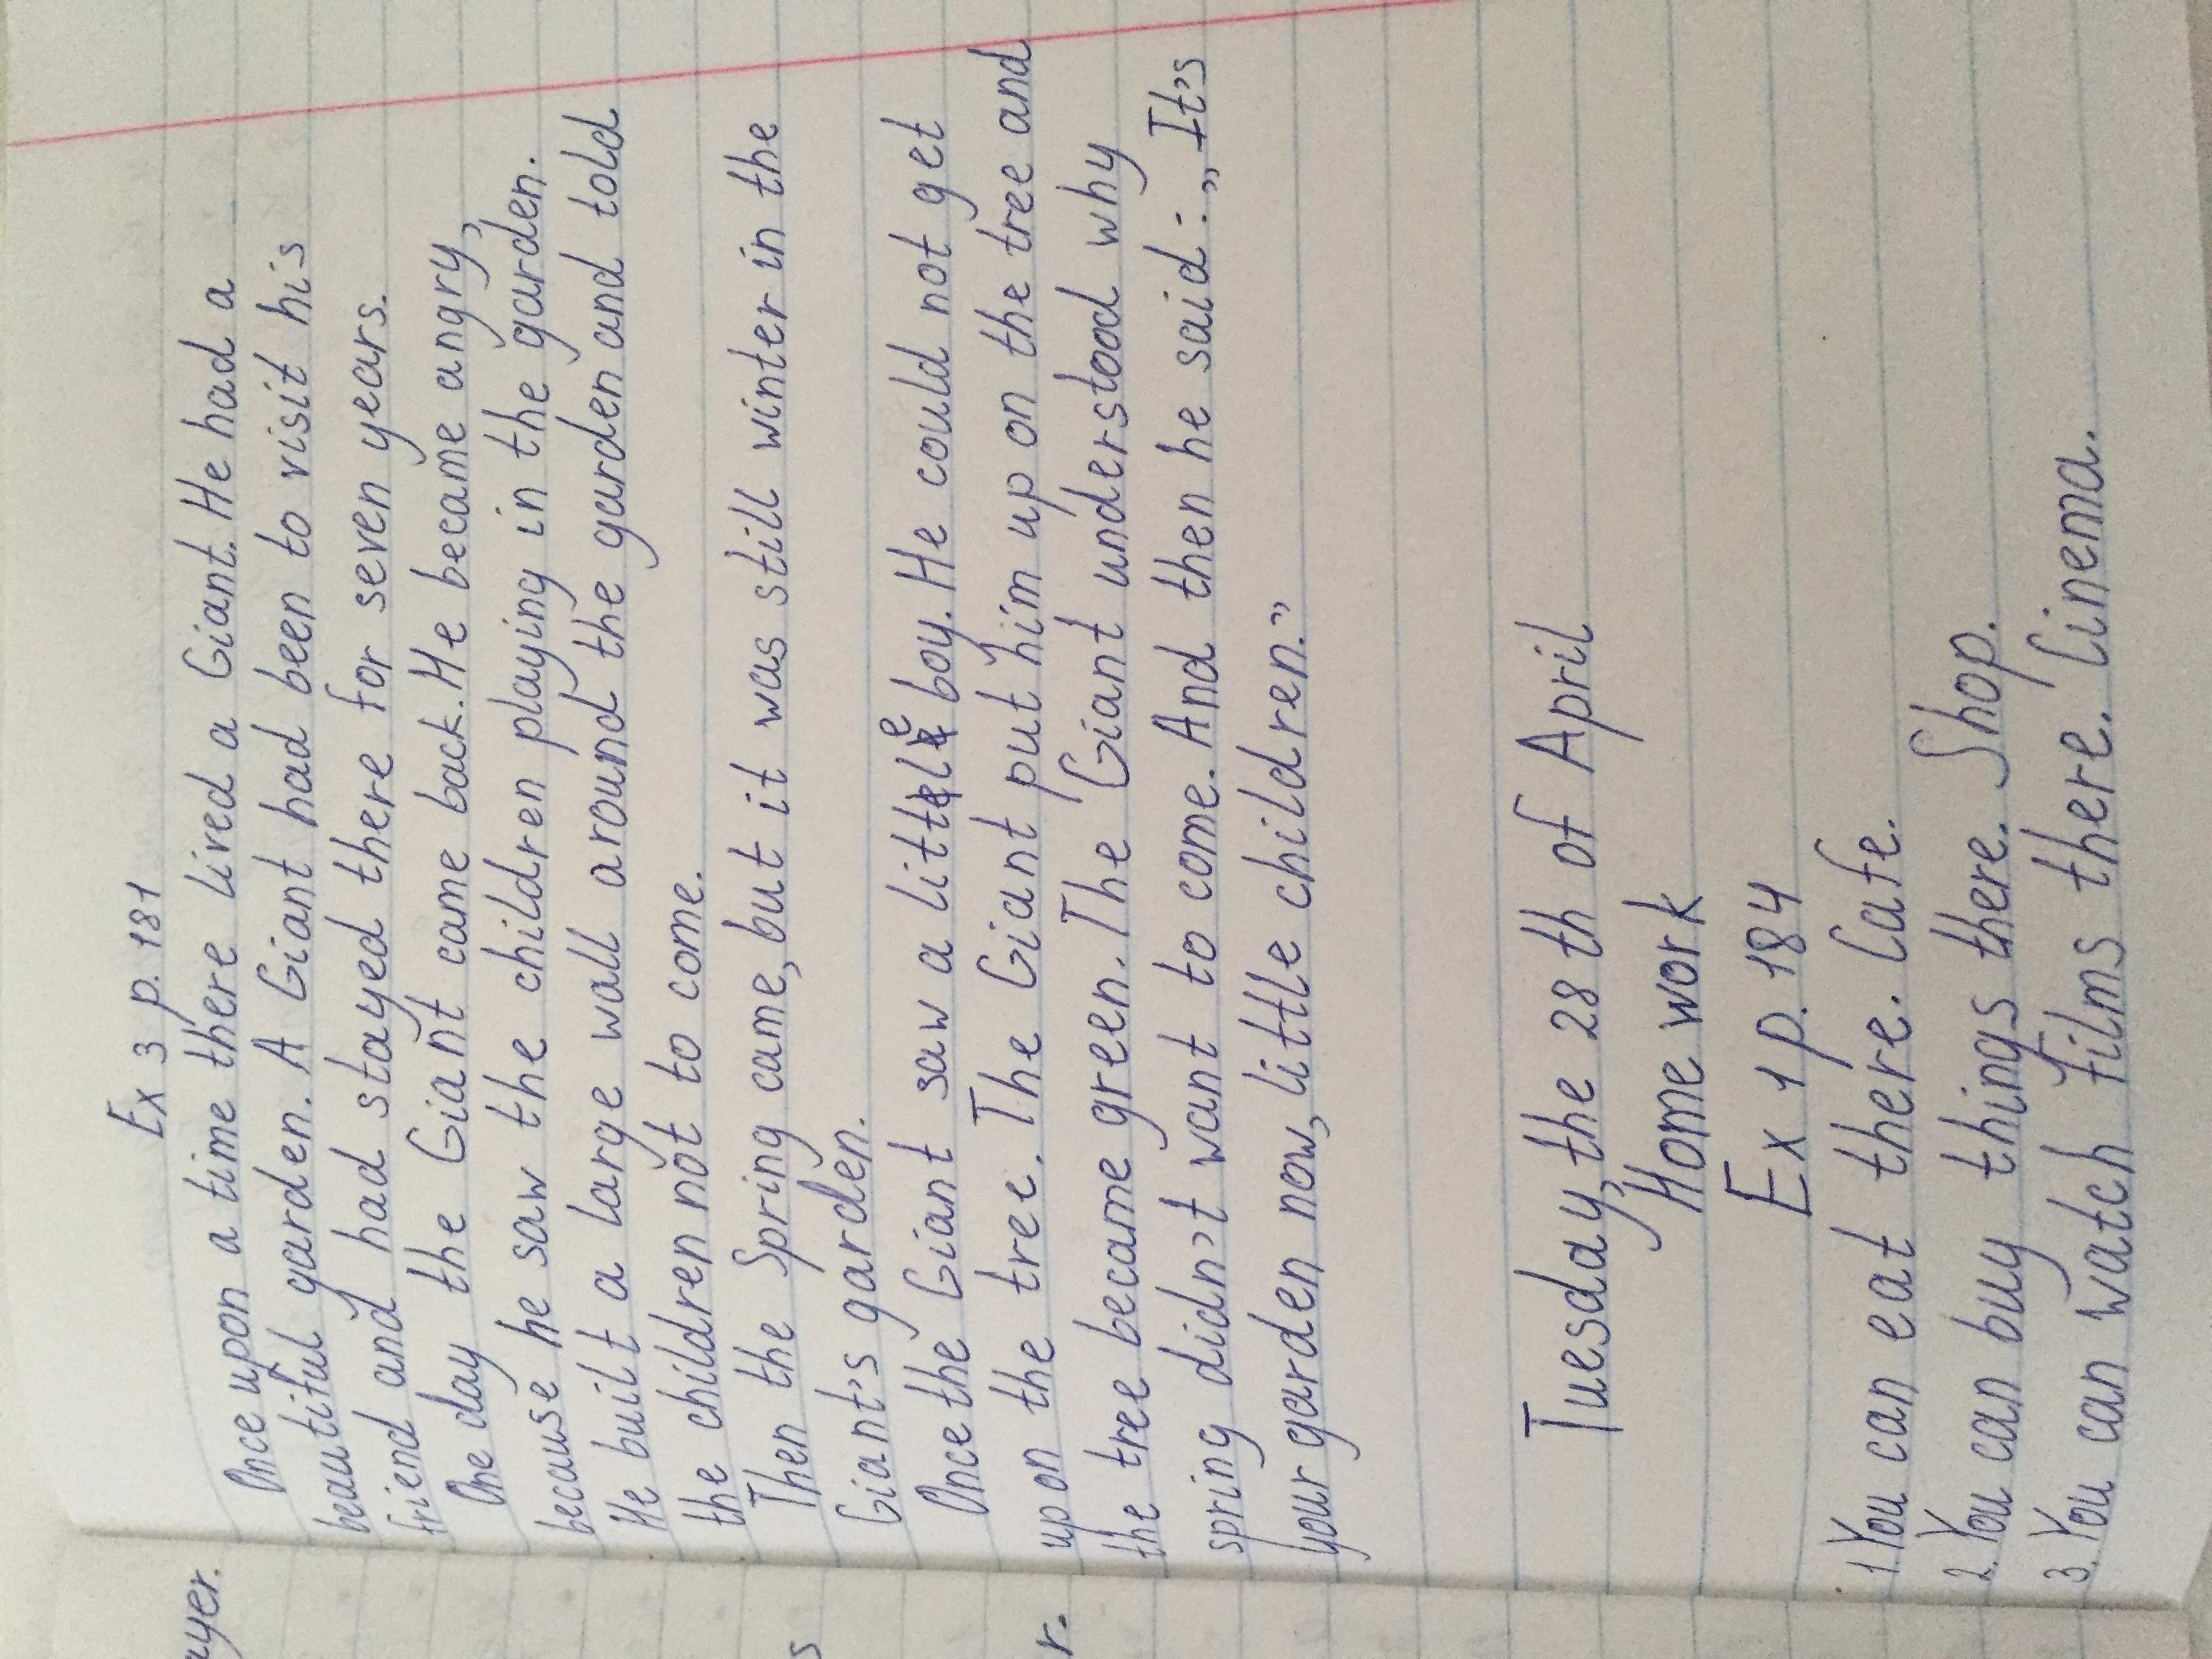 Ex 3 p. 181
Once upon a time there lived a Giant. He had a
beautiful garden. A Giant had been to visit his
friend and had stayed there for seven years.
One day the Giant came back. He became angry,
because he saw the children playing in the garden.
He built a large wall around the garden and told
the children not to come.
Then the Spring came, but it was still winter in the
Giant's garden.
Once the Giant saw a little boy. He could not get
upon the tree. The Giant put him up on the tree and
the tree became green. The Giant understood why
spring didn't want to come. And then he said: „It's
your garden now, little children.”
Tuesday, the 28 th of April
Home work
Ex 1 p. 184
1. You can eat there. Cafe.
2. You can buy things there. Shop.
3. You can watch films there. Cinema.